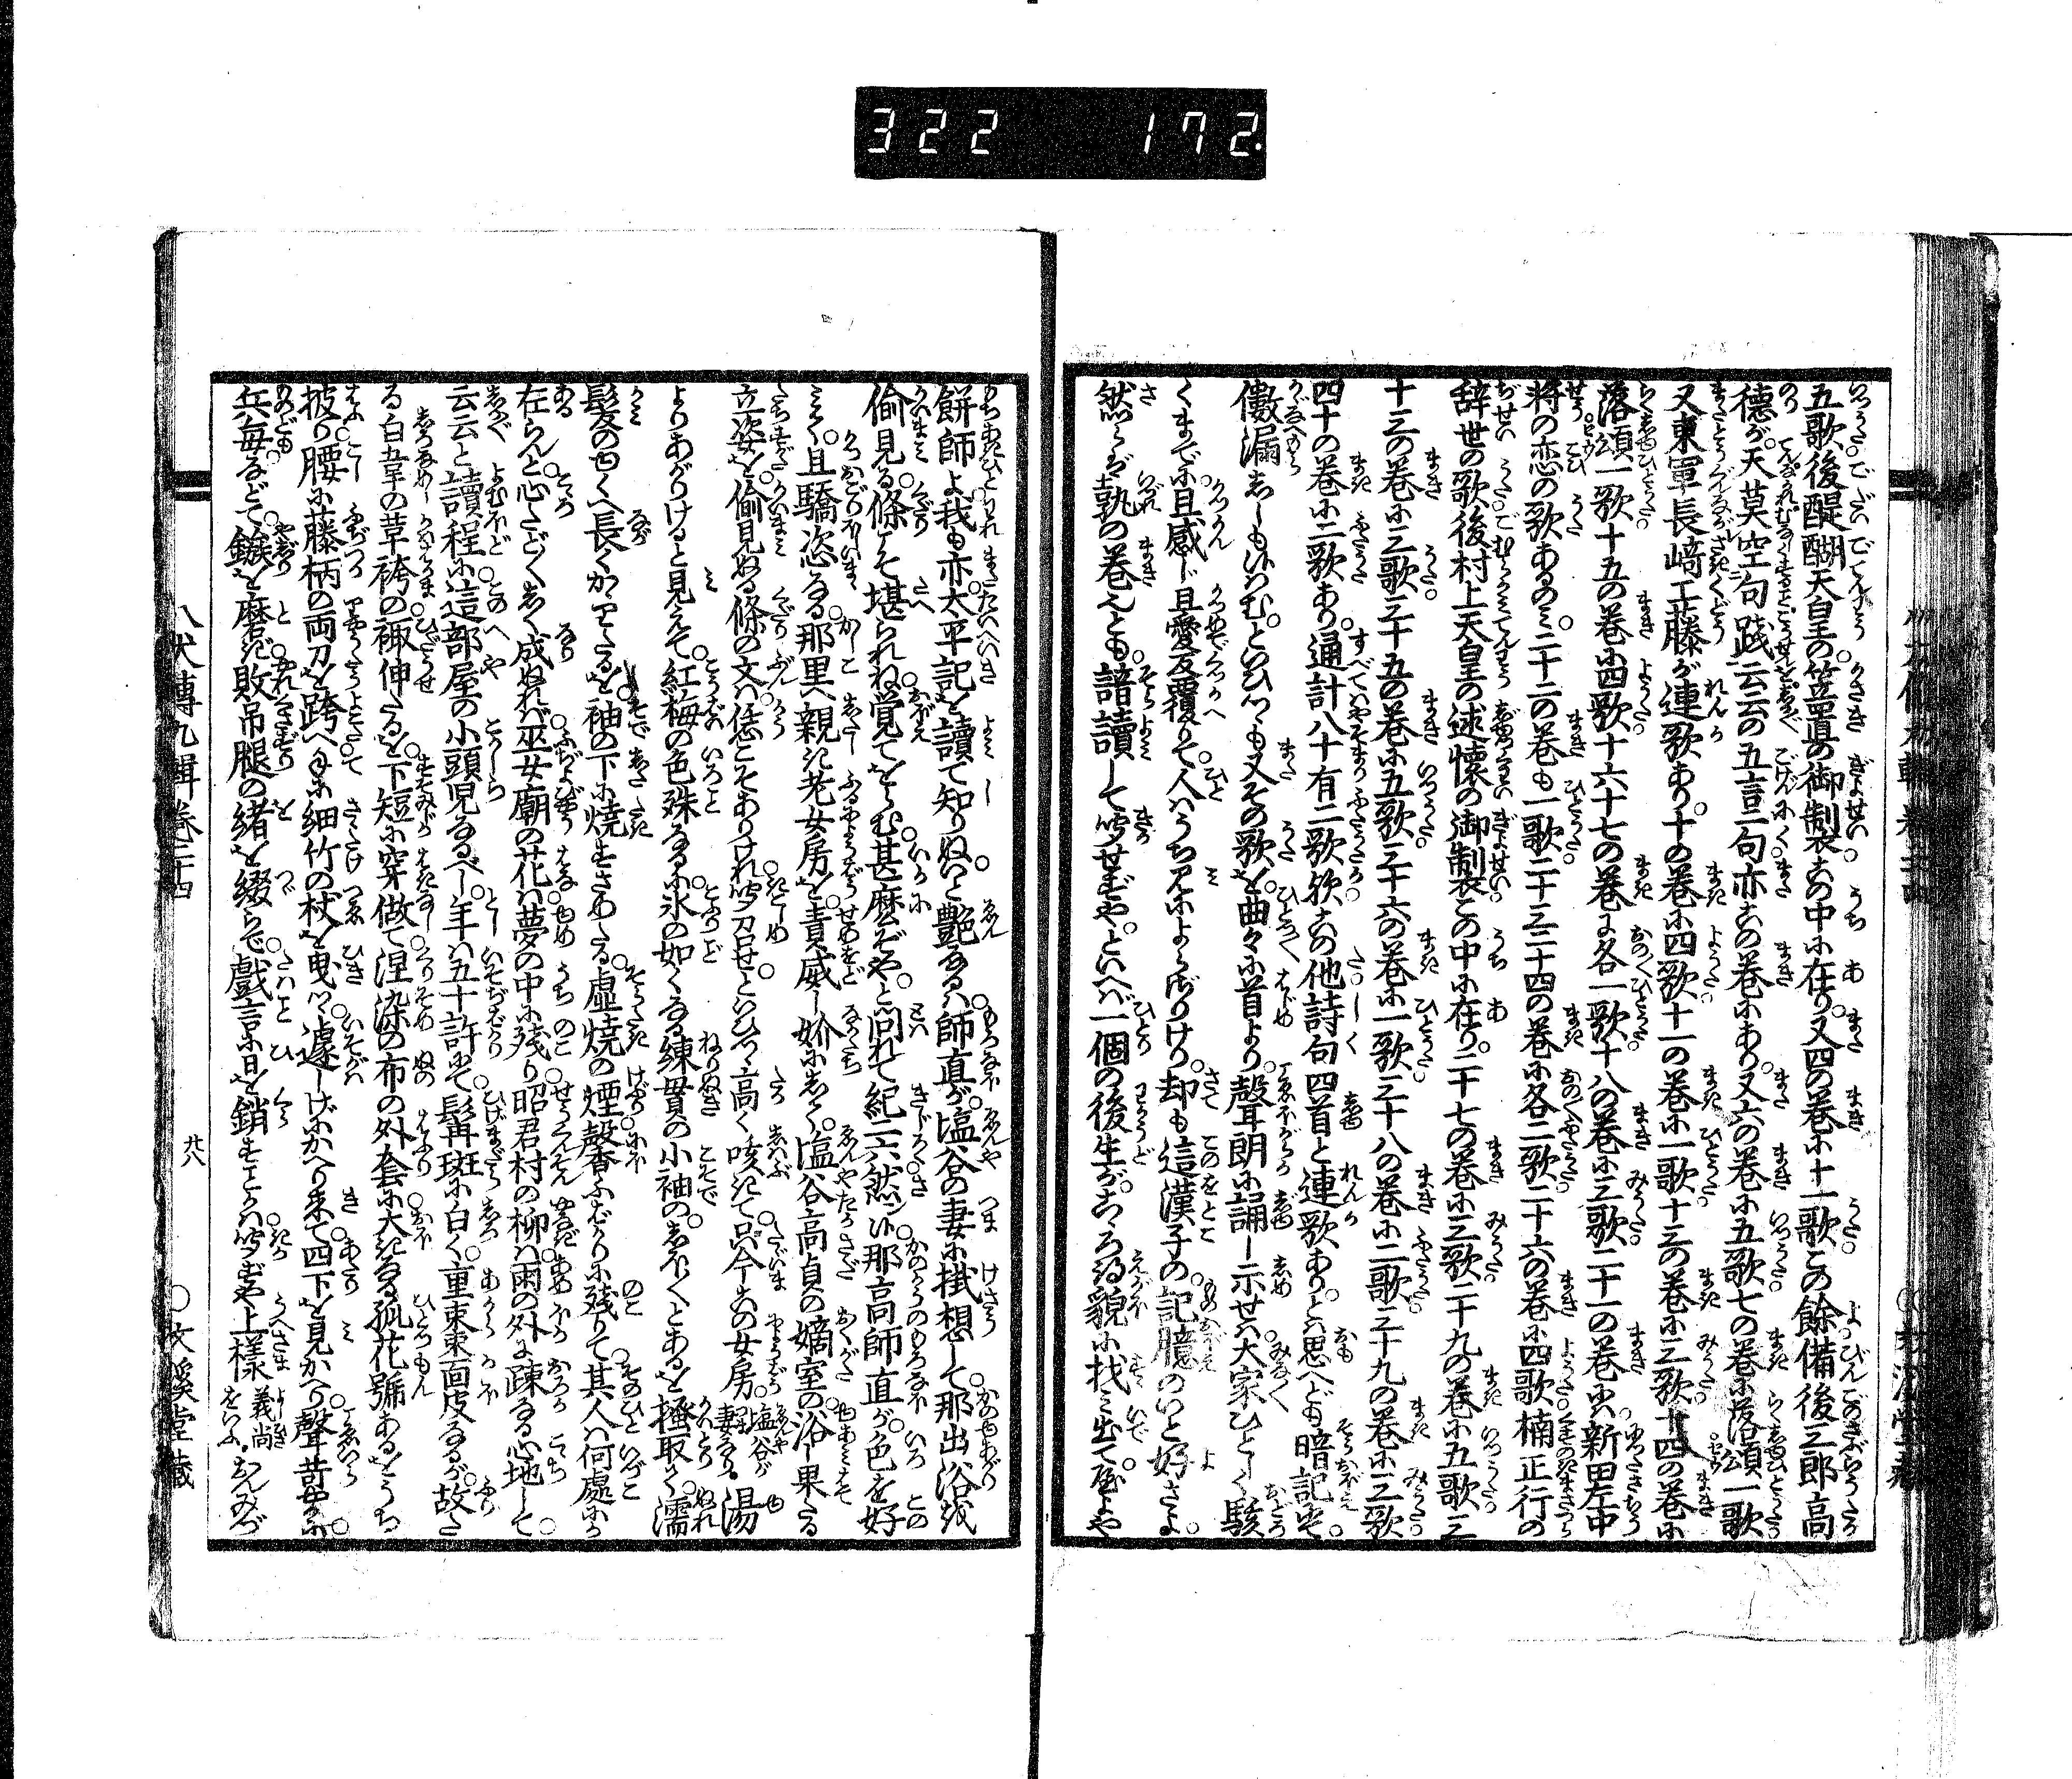 322 172
五歌後醍醐天皇の笠置の御製その中に在り又四の巻に十一歌この餘備後三郎高
徳が天莫空句践云云の五言二句亦その巻にあり又六の巻に五歌七の巻に落頌一歌
又東軍長﨑工藤が連歌あり十の巻に四歌十一の巻に一歌十三の巻に三歌十四の巻に
落頌一歌十五の巻に四歌十六十七の巻に各一歌十八の巻に三歌二十一の巻に新田左中
将の恋の歌あるのミ二十二の巻も一歌二十三二十四の巻に各二歌二十六の巻に四歌楠正行の
辞世の歌後村上天皇の述懐の御製この中に在り二十七の巻に三歌二十九の巻に五歌三
十三の巻に三歌三十五の巻に五歌三十六の巻に一歌三十八の巻に二歌三十九の巻に三歌
四十の巻に二歌あり通計八十有二歌歟その他詩句四首と連歌ありと思へども暗記にて
儻漏しもやせむといひつゝも又その歌を曲々に首より聲朗に誦し示せバ大家ひとしく駭
くまでに且感じ且愛反覆りて人ハうち見によらざりけり却も這漢子の記臆のいと好さよ
然らバ孰の巻んとも諳讀して聞せずやといへバ一個の後生がこゝろ得貌に找ミ出て否よや
餅師よ我も亦太平記を讀て知りぬいと艶なるハ師直が塩谷の妻に掛想して那出浴を
偷見る條こそ堪られね覚てをらむ甚麼ぞやと問れて紀二六然ン候那高師直が色を好
ミて且驕恣なる那里へ親き老女房を責威し媒にして塩谷高貞の嫡室の浴し果たる
立姿を偷見ぬる條の文ハ恁こそありけれ聞召せといひつゝ高く咳きて只今この女房塩谷が妻なり湯
よりあがりけると見えて紅梅の色殊なるに氷の如くなる練貫の小袖のしほしほとあるを掻取て濡
髪のゆくへ長くかゝりたるを袖の下に焼すさめたる虚焼の煙馨ふばかりに残りて其人ハ何處にか
在らんと心たどたどしく成ぬれバ巫女廟の花ハ夢の中に残り昭君村の柳ハ雨の外に疎なる心地して
云云と讀程に這部屋の小頭児なるべし年ハ五十許にて髯斑に白く重棗面皮なるが故たる
白五罕の草袴の襯伸たるを下短に穿做て涅染の布の外套に大きなる孤花號あるをうち
披り腰に藤柄の両刀を跨へ手に細竹の杖を曳つゝ遽しげにかへり来て四下を見かへり聲苛やかに
兵毎などて鏃を磨き敗弔腿の緒を綴らで戯言に日を銷すことかハ聞ずや上様義尚をいふ
八犬傳九輯巻二十四
廿八
文溪堂藏